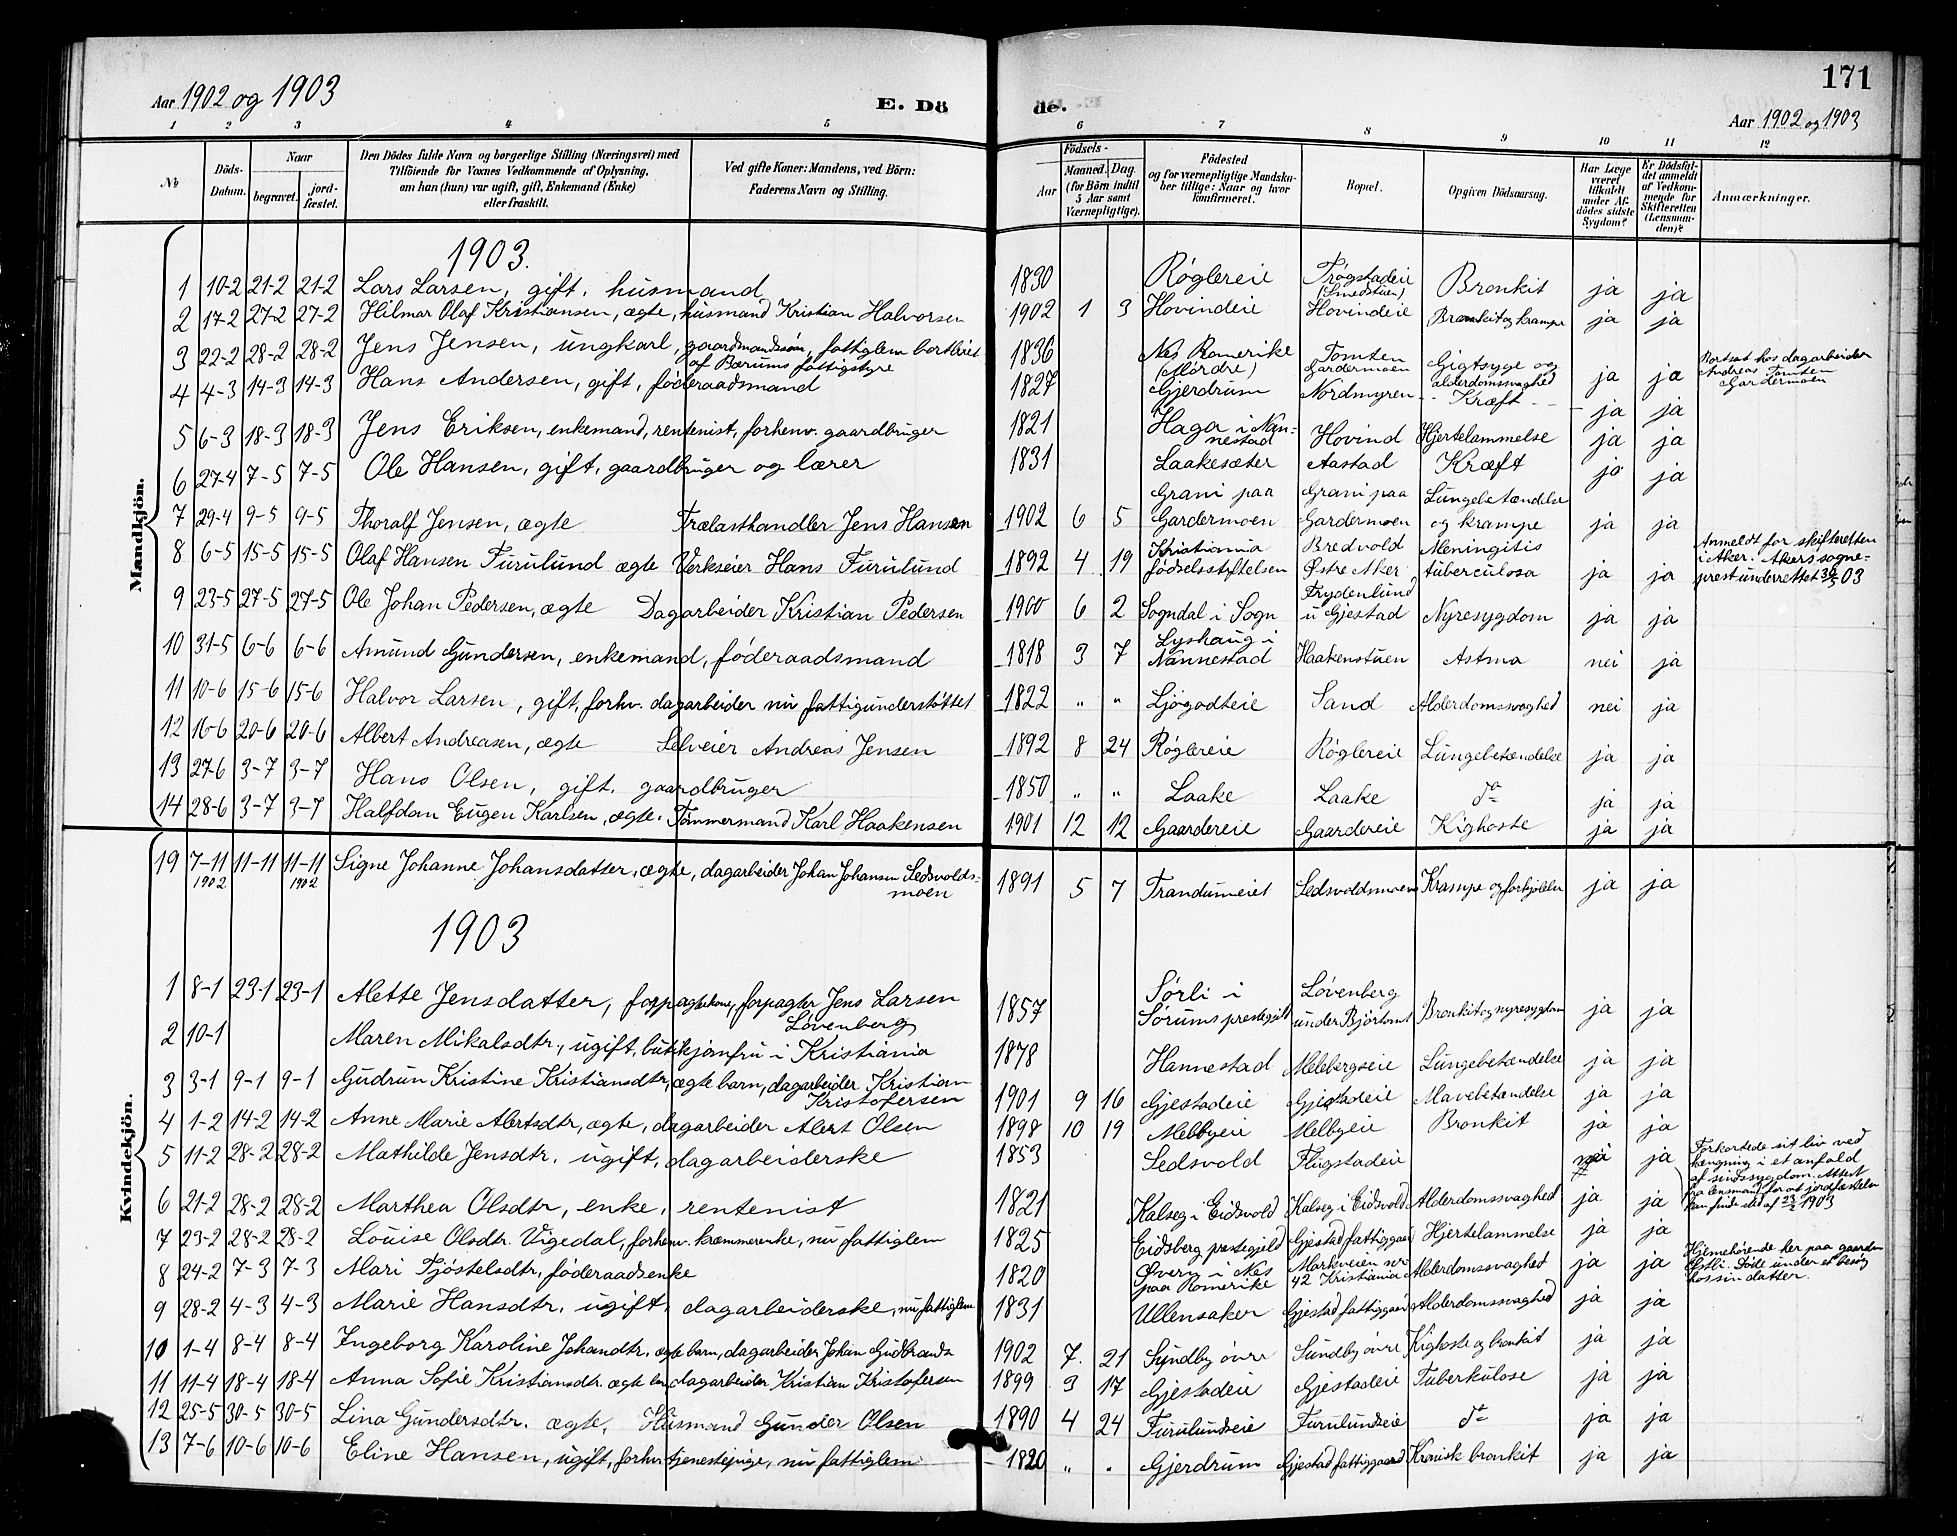 Aar 1902 og 1903 E. Dö de. 171
Aar 1902 og 1903
1 2 3 4 5 6 7 8 9 10 11 12
No. Döds-Datum. Naar begravet. jordfæstet. Den Dödes fulde Navn og borgerlige Stilling (Næringsvei) med Tilföiende for Voxnes Vedkommende af Oplysning, om han (hun) var ugift, gift, Enkemand (Enke) eller fraskilt. Ved gifte Koner: Mandens, ved Börn: Faderens Navn og Stilling. Födsels- Aar Maaned. Dag. (for Börn indtil 5 Aar samt Værnepligtige). Födested og for værnepligtige Mandskaber tillige: Naar og hvor konfirmeret. Bopæl. Opgiven Dödsaarsag. Har Læge været tilkaldt under Afdödes sidste Sygdom? Er Dödsfaldet anmeldt af Vedkommende for Skifteretten (Lensmanden)? Anmærkninger.
Mandkjön.
1903.
1 10-2 21-2 21-2 Lars Larsen, gift, husmand 1830 Røglereie Trøgstadeie (Smedstuen) Bronkit ja ja
2 17-2 27-2 27-2 Hilmar Olaf Kristiansen, ægte, husmand Kristian Halvorsen 1902 1 3 Hovindeie Hovindeie Bronkit og krampe ja ja
3 22-2 28-2 28-2 Jens Jensen, ungkarl, gaardmandssøn, fattiglem bortsat af Bærums fattigstyre 1836 Nes Romerike (Mordre) Tomten Gardermoen Gigtsyge og alderdomsvaghed ja ja Bortsat hos dagarbeider Andreas Tomten Gardermoen
4 4-3 14-3 14-3 Hans Andersen, gift, føderaadsmand 1827 Gjerdrum Nordmyren Kræft ja ja
5 6-3 18-3 18-3 Jens Eriksen, enkemand, rentenist, forhenv. gaardbruger 1821 Haga i Nannestad Hovind Hjertelammelse ja ja
6 27-4 7-5 7-5 Ole Hansen, gift, gaardbruger og lærer 1831 Laakesæter Aastad Kræft ja ja
7 29-4 9-5 9-5 Thoralf Jensen, ægte Trælasthandler Jens Hansen 1902 6 5 Grani paa Gardermoen Grani paa Gardermoen Lungebetændelse og krampe ja ja
8 6-5 15-5 15-5 Olaf Hansen Furulund ægte Verkseier Hans Furulund 1892 4 19 Kristiania fødselsstiftelsen Bredvold Østre Aker Meningitis tuberculosa ja ja Anmeldt for skifteretten i Aker. Akers sogneprest underrettet 03
9 23-5 27-5 27-5 Ole Johan Pedersen, ægte Dagarbeider Kristian Pedersen 1900 6 2 Sogndal i Sogn Frydenlund u Gjestad Nyresygdom ja ja
10 31-5 6-6 6-6 Amund Gundersen, enkemand, føderaadsmand 1818 3 7 Lyshaug i Nannestad Haakenstuen Astma nei ja
11 10-6 15-6 15-6 Halvor Larsen, gift, forhv. dagarbeider nu fattigunderstøttet 1822 " " Ljøgodteie Sand Alderdomssvaghed nei ja
12 16-6 20-6 20-6 Albert Andreasen, ægte Selveier Andreas Jensen 1892 8 24 Røglereie Røglereie Lungebetændelse ja ja
13 27-6 3-7 3-7 Hans Olsen, gift, gaardbruger 1850 " " Laake Laake do ja ja
14 28-6 3-7 3-7 Halfdan Eugen Karlsen, ægte, Tømmermand Karl Haakensen 1901 12 12 Gaardereie Gaardereie Kighoste ja ja
Kvindekjön.
19 7-11 1902 11-11 11-11 1902 Signe Johanne Johansdatter, ægte, dagarbeider Johan Johansen Ledsvoldsmoen 1891 5 7 Trandumeiet Ledsvoldsmoen Krampe og forkjølelse ja ja
1903
1 8-1 23-1 23-1 Alette Jensdatter, forpagterkone, forpagter Jens Larsen Løvenberg 1857 Sørli i Sørums prestegjeld Løvenberg under Bjørtomt Bronkit og nyresygdom ja ja
2 10-1 Maren Mikalsdtr., ugift, butikjomfru i Kristiania 1878 Hannestad Melebergseie Lungebetændelse ja ja
3 3-1 9-1 9-1 Gudrun Kristine Kristiansdtr, ægte barn, dagarbeider Kristian Kristofersen 1901 9 16 Gjestadeie Gjestadeie Mavebetændelse ja ja
4 1-2 14-2 14-2 Anne Marie Alertsdtr, ægte, dagarbeider Alert Olsen 1898 10 19 Melbyeie Melbyeie Bronkit ja ja
5 11-2 28-2 28-2 Mathilde Jensdtr. ugift, dagarbeiderske 1853 Ledsvold Flugstadeie nei ja Forkortede sit liv ved hængning i et anfald af sindssygdom. Attest fra lensmand for at jordfæstelse kan finde sted af 1903
6 21-2 28-2 28-2 Marthea Olsdtr, enke, rentenist 1821 Kalseg i Eidsvold Kalseg i Eidsvold Alderdomssvaghed ja ja
7 23-2 28-2 28-2 Louise Olsdtr. Vigedal, forhenv. kræmmerenke, nu fattiglem 1825 Eidsberg prestegjeld Gjestad fattiggaard Hjertelammelse ja ja
8 24-2 7-3 7-3 Mari Tjøstelsdtr, føderaadsenke 1820 Øvern i Nes paa Romerike Markveien nr 42 Kristiania Alderdomssvaghed ja ja Hjemehørende her paa gaarden Døde under et besøg hos sin datter.
9 28-2 4-3 4-3 Marie Hansdtr. ugift, dagarbeiderske, nu fattiglem 1831 Ullensaker Gjestad fattiggaard Alderdomssvaghed ja ja
10 1-4 8-4 8-4 Ingeborg Karoline Johandtr. ægte barn, dagarbeider Johan Gudbrands. 1902 7. 21 Sundby øvre Sundby øvre Kighoste og bronkit ja ja
11 11-4 18-4 18-4 Anna Sofie Kristiansdtr. ægte barn dagarbeider Kristian Kristofersen 1899 3 17 Gjestadeie Gjestadeie Tuberkulose ja ja
12 25-5 30-5 30-5 Lina Gundersdtr. ægte, Husmand Gunder Olsen 1890 4 24 Furulundseie Furulundseie do ja ja
13 7-6 10-6 10-6 Eline Hansen, ugift, forhv. tjenestepige, nu fattiglem 1820 " " Gjerdrum Gjestad fattiggaard Kronisk bronkit ja ja